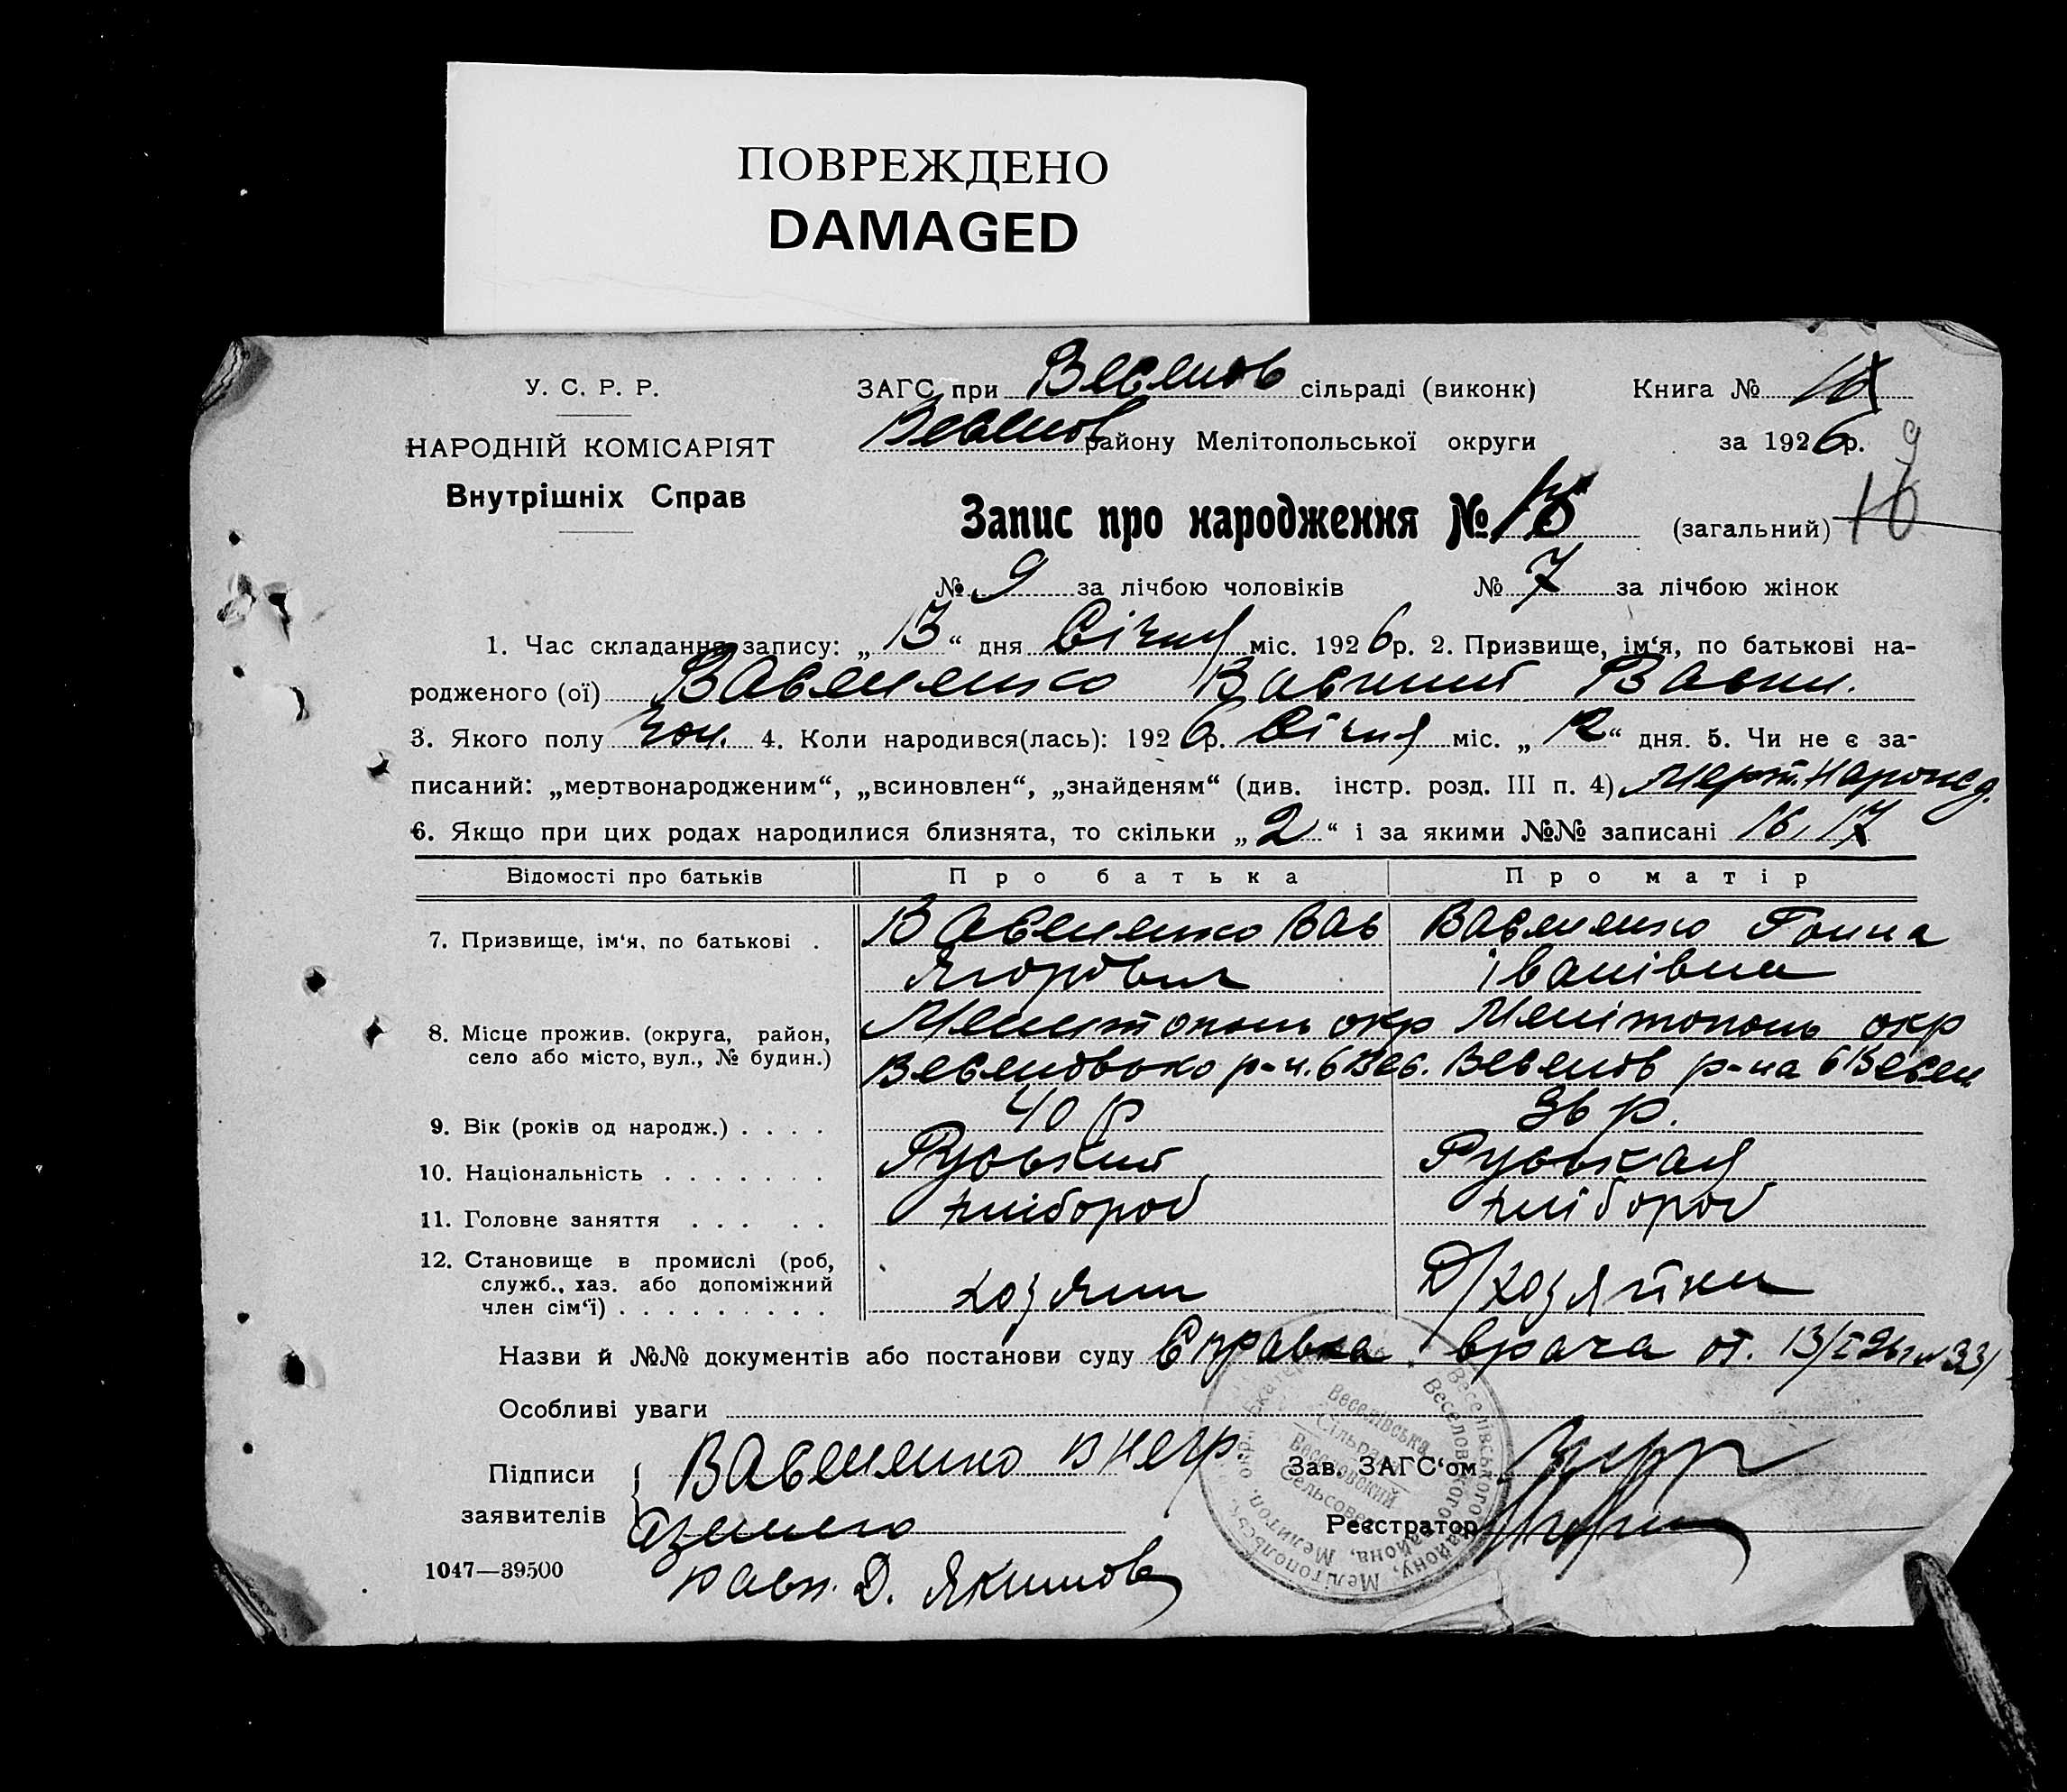 ПОВРЕЖДЕНО
DAMAGED
У. С. Р. Р.
НАРОДНІЙ КОМІСАРІЯТ
Внутрішніх Справ
ЗАГС при Веселов сільраді (виконк) Книга №
Веселов району Мелітопольської округи за 1926р.
9
Запис про народження № (загальний) 16
№ 9 за лічбою чоловіків № 7 за лічбою жінок
1. Час складання запису: „13“ дня Січня міс. 1926р. 2. Призвище, ім‘я, по батькові на-
родженого (ої) Василенко Василий Васил.
3. Якого полу чол. 4. Коли народився(лась): 1926р. Січня міс. „12“ дня. 5. Чи не є за-
писаний: „мертвонародженим“, „всиновлен“, „знайденям“ (див. інстр. розд. III п. 4) мерт. нарожд.
6. Якщо при цих родах народилися близнята, то скільки „2“ і за якими №№ записані 16, 17
Відомості про батьків Про батька Про матір
7. Призвище, ім‘я, по батькові . Василенко Вас Василенко Ганна
Ягорович Іванівна
8. Місце прожив. (округа, район, Мелитополь окр Мелітополь окр
село або місто, вул., № будин.) Веселовько р-н. с Вес. Веселов р-на с Весел
9. Вік (років од народж.) . . . . 40 р 36 р.
10. Національність . . . . . . . Руський Руськая
11. Головне заняття . . . . . хлібороб хлібороб
12. Становище в промислі (роб,
служб., хаз. або допоміжний
член сім‘ї) . . . . . . . . . хозяин Д/хозяйки
Назви й №№ документів або постанови суду Справка врача от. 13/I 26 г № 33
Особливі уваги
Підписи Василенко
заявителів
Зав. ЗАГС‘ом
Реєстратор
1047—39500 Д. Якимов
Веселівська
Сільрада
Веселовский
Сельсовет
Веселівського району, Мелітопольськ.
Веселовского района, Мелитоп. окр.